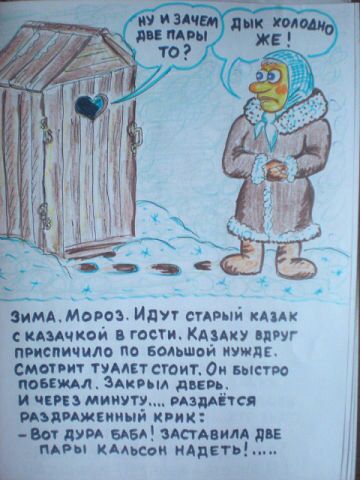 НУ И ЗАЧЕМ
ДВЕ ПАРЫ
ТО?
ДЫК ХОЛОДНО
ЖЕ!
ЗИМА. МОРОЗ. ИДУТ СТАРЫЙ КАЗАК
С КАЗАЧКОЙ В ГОСТИ. КАЗАКУ ВДРУГ
ПРИСПИЧИЛО ПО БОЛЬШОЙ НУЖДЕ.
СМОТРИТ ТУАЛЕТ СТОИТ. ОН БЫСТРО
ПОБЕЖАЛ. ЗАКРЫЛ ДВЕРЬ.
И ЧЕРЕЗ МИНУТУ.... РАЗДАЁТСЯ
РАЗДРАЖЕННЫЙ КРИК:
– ВОТ ДУРА БАБА! ЗАСТАВИЛА ДВЕ
ПАРЫ КАЛЬСОН НАДЕТЬ!.....